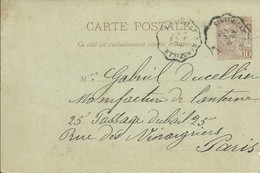 CARTE POSTALE
Ce côté est exclusivement réservé à l'adresse
M Gabriel Ducellier
Manufacture de lanterne
25 Passage dubail 25
Rue des Vinaigriers
Paris
10